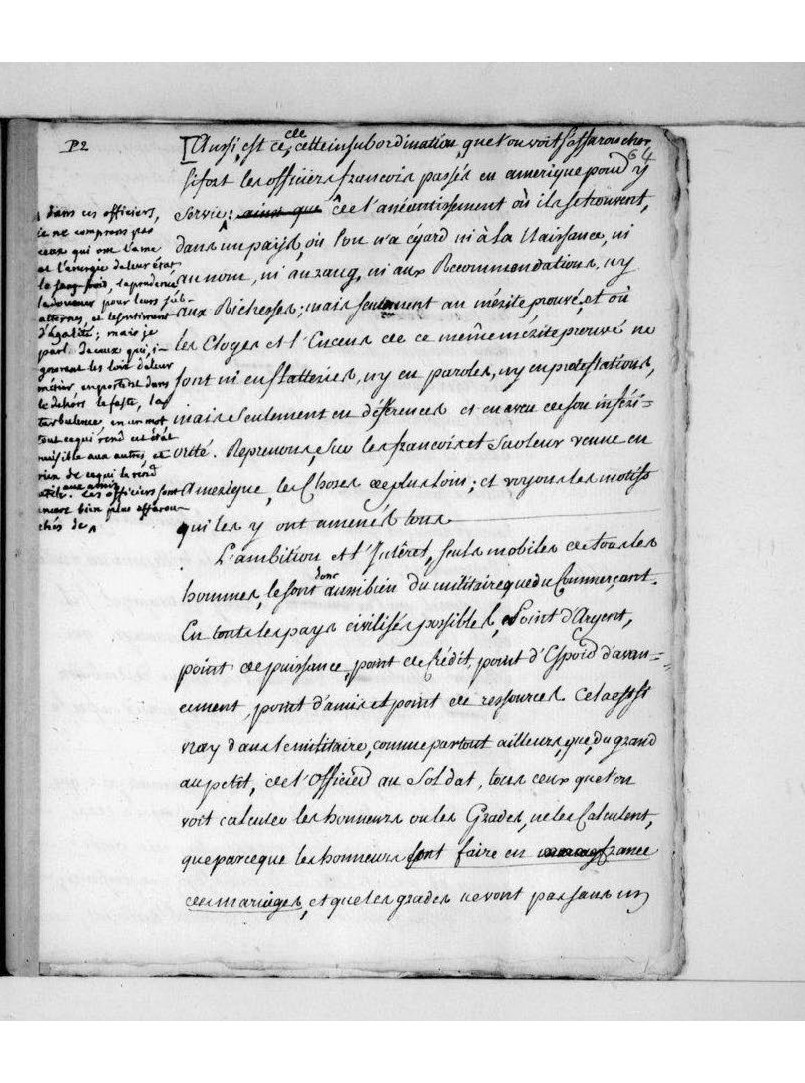 P2
64
[Aussi, est ce, de cette insubordination, que l'on voit s'effaroucher
si fort les officiers francois passés en amerique pour y
servir; ainsi que de l'anéantissement où ils se trouvent,
dans un pays, où l'on n'a égard ni à la Naissance, ni
au nom, ni au rang, ni aux Recommendations, ny
aux Richesses; mais seulement au mérite prouvé, et où
les Eloges et l'Encens de ce même mérite prouvé ne
sont ni en flatteries, ny en paroles, ny en protestations,
mais seulement en déférences et en aveu de son inféri-
orité. Reprenons, sur les francois et sur leur venue en
Amerique, les Choses de plus loin; et voyons les motifs
qui les y ont amenés tous.
dans ces officiers,
je ne comprens pas
ceux qui ont l'ame
et l'energie de leur état
le sang-froid, la prudence
la douceur pour leurs sub-
alternes, et le sentiment
d'égalité; mais je
parle de ceux qui, i-
gnorant les loix de leur
métier en portent dans
le dehors le faste, la
turbulence, en un mot
tout ce qui rend cet état
nuisible aux autres, et
rien de ce qui le rend
utile. Ces officiers sont
encore bien plus effarou-
chés de
L'ambition et l'Intérêt, seuls mobiles de tous les
hommes, le sont donc aussi bien du militaire que du Commerçant.
En tous les pays civilisés possibles, Point d'Argent,
point de puissance, point de Crédit, point d'Espoir d'avan-
cement, point d'amis et point de ressources. Cela est si
vray dans le militaire, comme partout ailleurs, que, du grand
au petit, de l'Officier au Soldat, tous ceux que l'on
voit calculer les honneurs ou les Grades, ne les Calculent,
que parceque les honneurs font faire en france
des mariages, et que les grades ne vont pas sans un